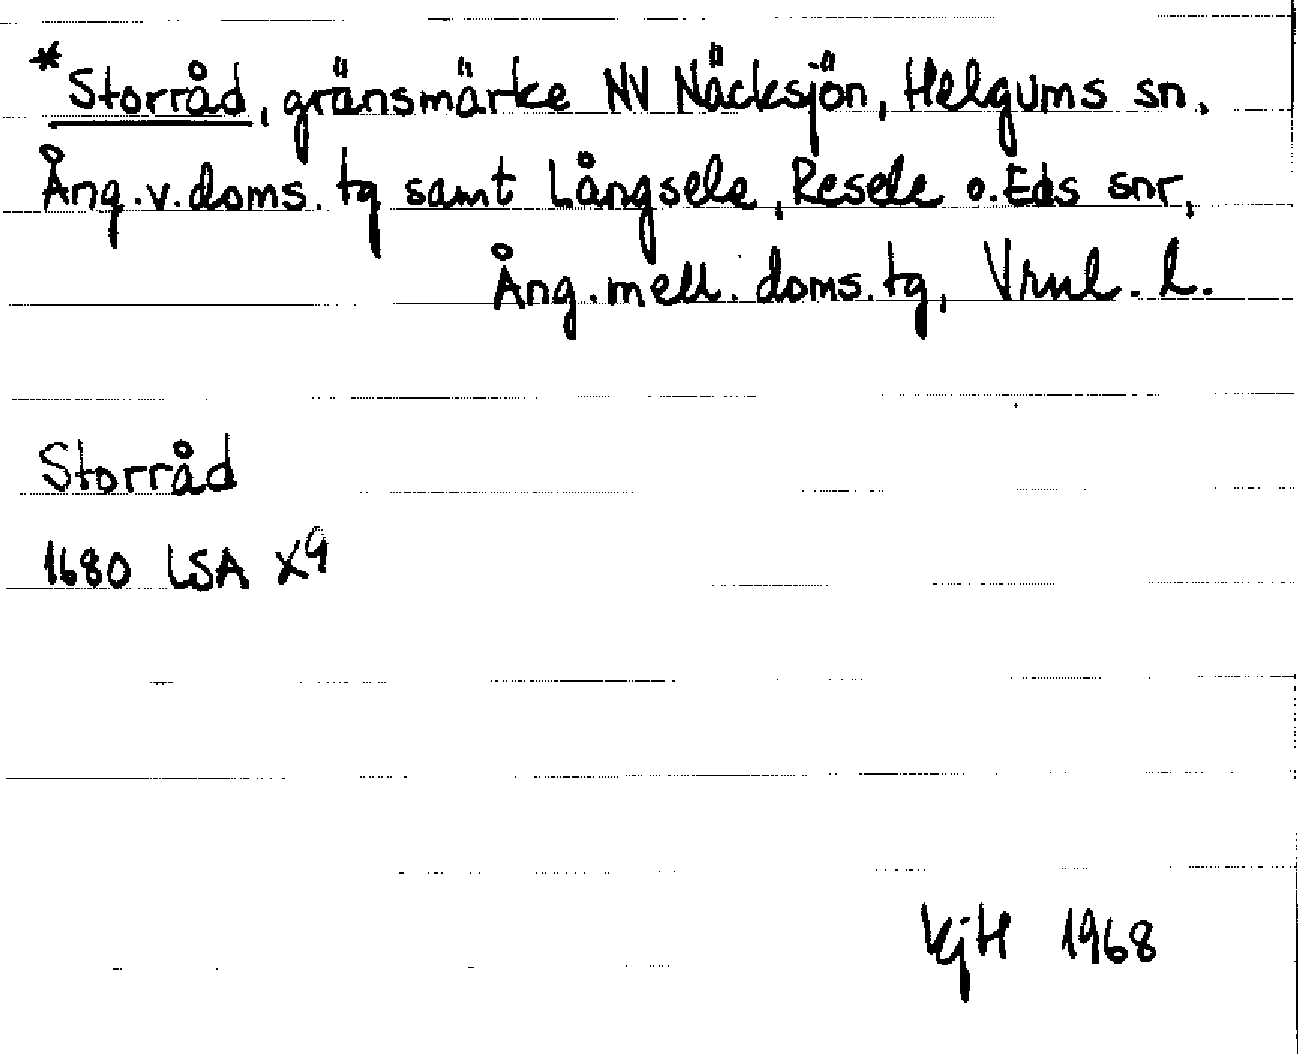 *Storråd, gränsmärke NV Näcksjön, Helgums sn,
Ång.v.doms.tg samt Långsele, Resele o.Eds snr,
Ång.mell.doms.tg, Vrnl. l.
Storråd
1680 LSA X9
KjH 1968